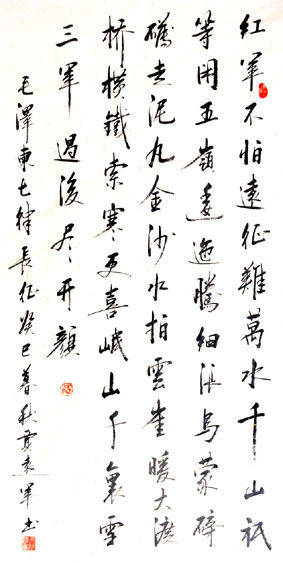 红軍不怕遠征難萬水千山祇
等闲五嶺逶迤騰細浪烏蒙磅
礴走泥丸金沙水拍雲崖暖大渡
桥横鐵索寒更喜岷山千裏雪
三軍過後尽开顔
毛澤東七律長征癸巳暮秋遠軍书